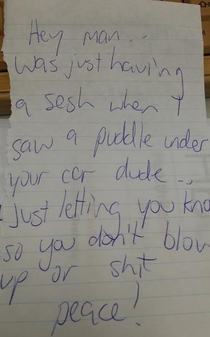 Hey man..
Was just having
a sesh when I
saw a puddle under
your car dude..
just letting you kno
so you don't blow
up or shit
peace!